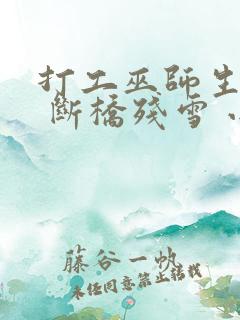 打工巫師生
斷橋殘雪
藤谷一帆
未經同意禁止轉載